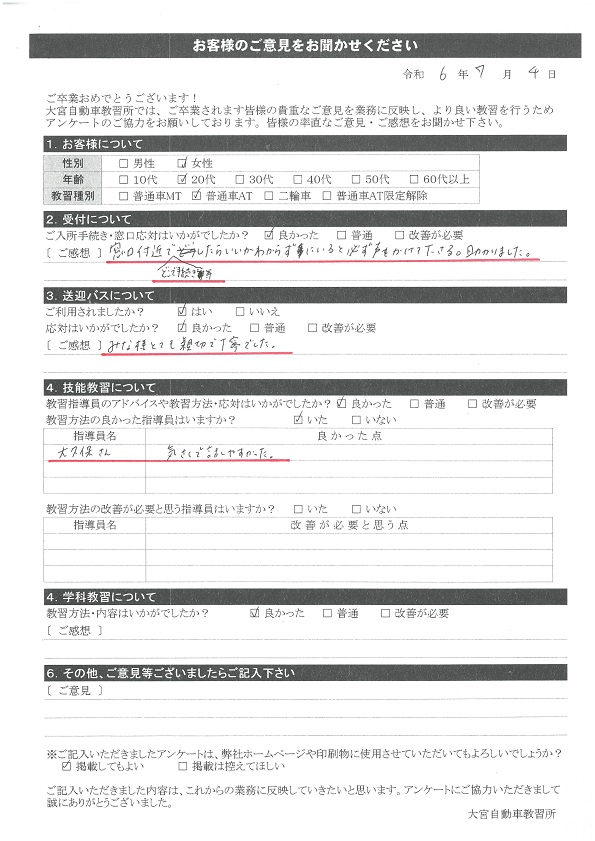 お客様のご意見をお聞かせください
令和 6 年 7 月 4 日
ご卒業おめでとうございます！
大宮自動車教習所では、ご卒業されます皆様の貴重なご意見を業務に反映し、より良い教習を行うため
アンケートのご協力をお願いしております。皆様の率直なご意見・ご感想をお聞かせ下さい。
1. お客様について
性別 □ 男性 ☑ 女性
年齢 □ 10代 ☑ 20代 □ 30代 □ 40代 □ 50代 □ 60代以上
教習種別 □ 普通車MT ☑ 普通車AT □ 二輪車 □ 普通車AT限定解除
2. 受付について
ご入所手続き・窓口対応はいかがでしたか？ ☑ 良かった □ 普通 □ 改善が必要
[ ご感想 ] 窓口付近でどうしたらいいかわからずにいると必ず声をかけて下さる。助かりました。
3. 送迎バスについて
ご利用されましたか？ ☑ はい □ いいえ
応対はいかがでしたか？ ☑ 良かった □ 普通 □ 改善が必要
[ ご感想 ] みな様とても親切で丁寧でした。
4. 技能教習について
教習指導員のアドバイスや教習方法・応対はいかがでしたか？ ☑ 良かった □ 普通 □ 改善が必要
教習方法の良かった指導員はいますか？ ☑ いた □ いない
指導員名 良かった点
大久保さん 気さくで話しやすかった。
教習方法の改善が必要と思う指導員はいますか？ □ いた □ いない
指導員名 改善が必要と思う点
4. 学科教習について
教習方法・内容はいかがでしたか？ ☑ 良かった □ 普通 □ 改善が必要
[ ご感想 ]
6. その他、ご意見等ございましたらご記入下さい
[ ご意見 ]
※ご記入いただきましたアンケートは、弊社ホームページや印刷物に使用させていただいてもよろしいでしょうか？
☑ 掲載してもよい □ 掲載は控えてほしい
ご記入いただきました内容は、これからの業務に反映していきたいと思います。アンケートにご協力いただきまして
誠にありがとうございました。
大宮自動車教習所